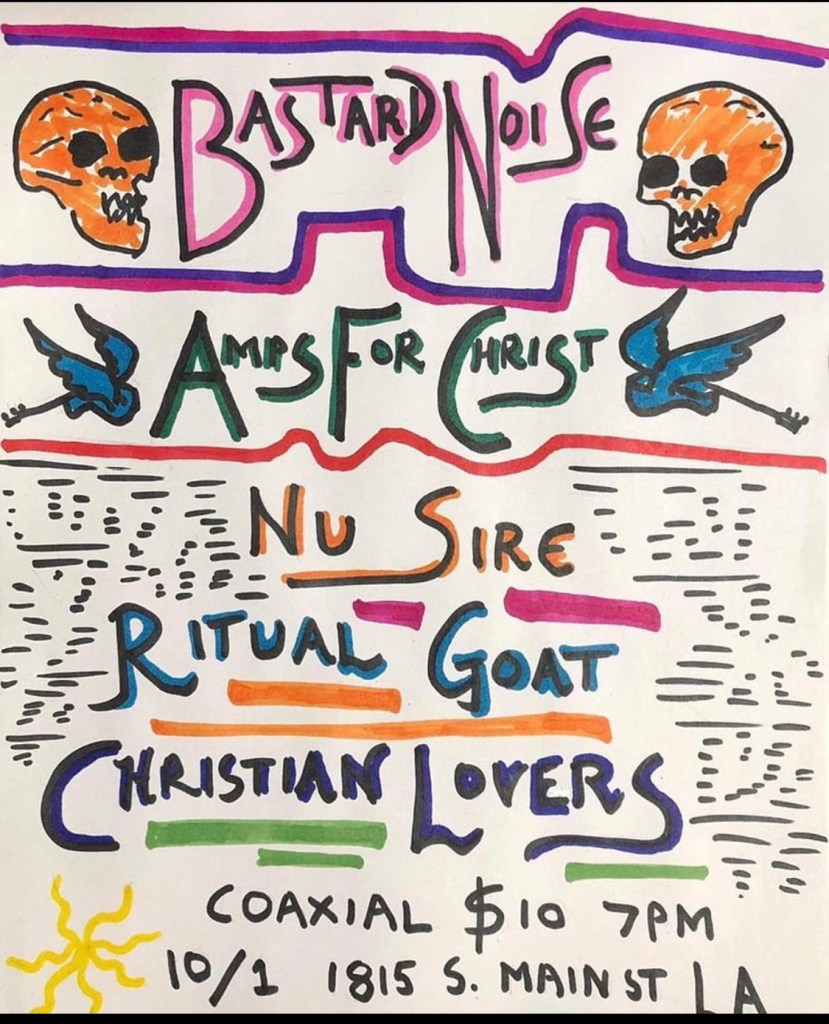 BASTARD NOISE
AMPS FOR CHRIST
NU SIRE
RITUAL GOAT
CHRISTIAN LOVERS
COAXIAL $10 7PM
10/1 1815 S. MAIN ST LA